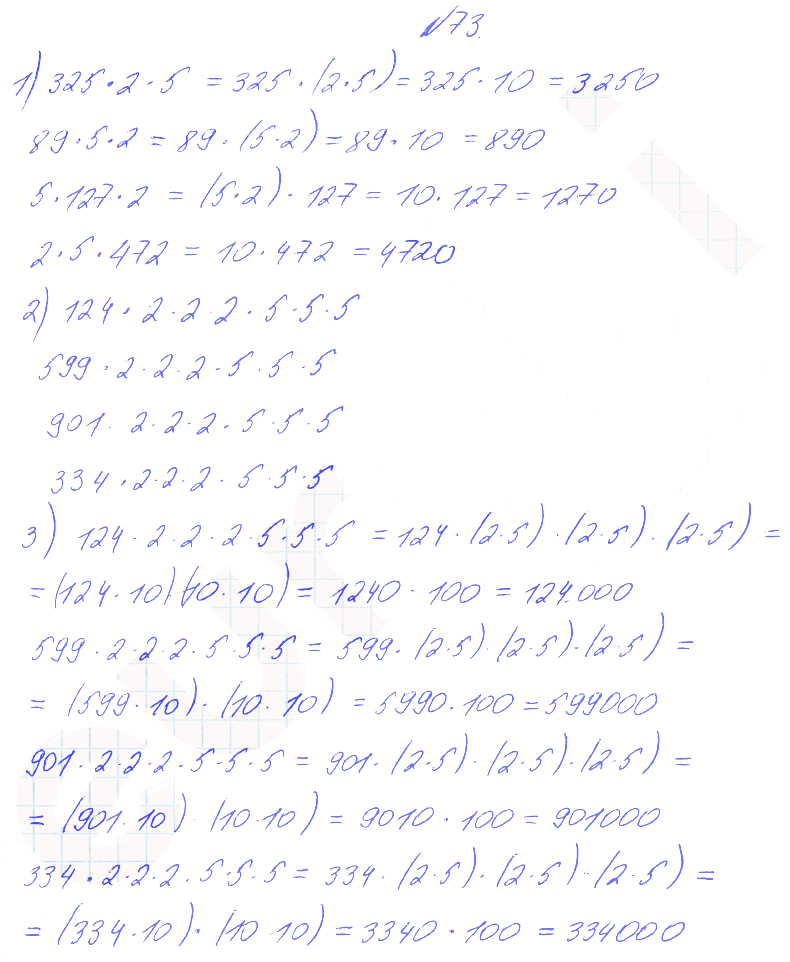 №73.
1) 325 · 2 · 5 = 325 · (2 · 5) = 325 · 10 = 3250
89 · 5 · 2 = 89 · (5 · 2) = 89 · 10 = 890
5 · 127 · 2 = (5 · 2) · 127 = 10 · 127 = 1270
2 · 5 · 472 = 10 · 472 = 4720
2) 124 · 2 · 2 · 2 · 5 · 5 · 5
599 · 2 · 2 · 2 · 5 · 5 · 5
901 · 2 · 2 · 2 · 5 · 5 · 5
334 · 2 · 2 · 2 · 5 · 5 · 5
3) 124 · 2 · 2 · 2 · 5 · 5 · 5 = 124 · (2 · 5) · (2 · 5) · (2 · 5) =
= (124 · 10) · (10 · 10) = 1240 · 100 = 124.000
599 · 2 · 2 · 2 · 5 · 5 · 5 = 599 · (2 · 5) · (2 · 5) · (2 · 5) =
= (599 · 10) · (10 · 10) = 5990 · 100 = 599000
901 · 2 · 2 · 2 · 5 · 5 · 5 = 901 · (2 · 5) · (2 · 5) · (2 · 5) =
= (901 · 10) · (10 · 10) = 9010 · 100 = 901000
334 · 2 · 2 · 2 · 5 · 5 · 5 = 334 · (2 · 5) · (2 · 5) · (2 · 5) =
= (334 · 10) · (10 · 10) = 3340 · 100 = 334000